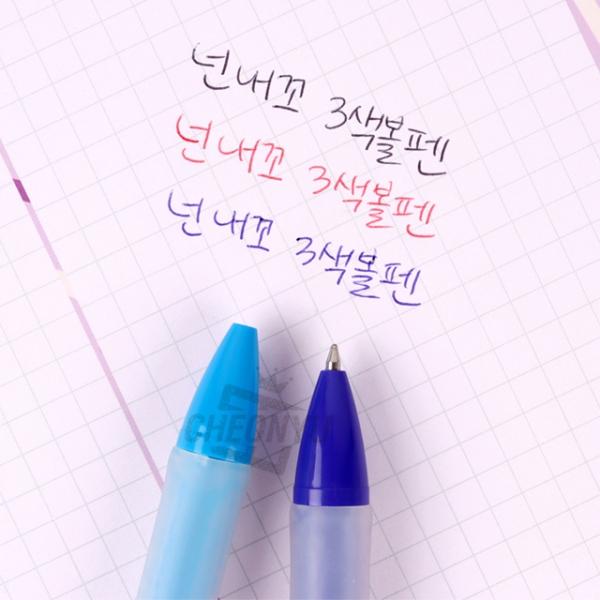 넌내꼬 3색볼펜
넌내꼬 3색볼펜
넌내꼬 3색볼펜